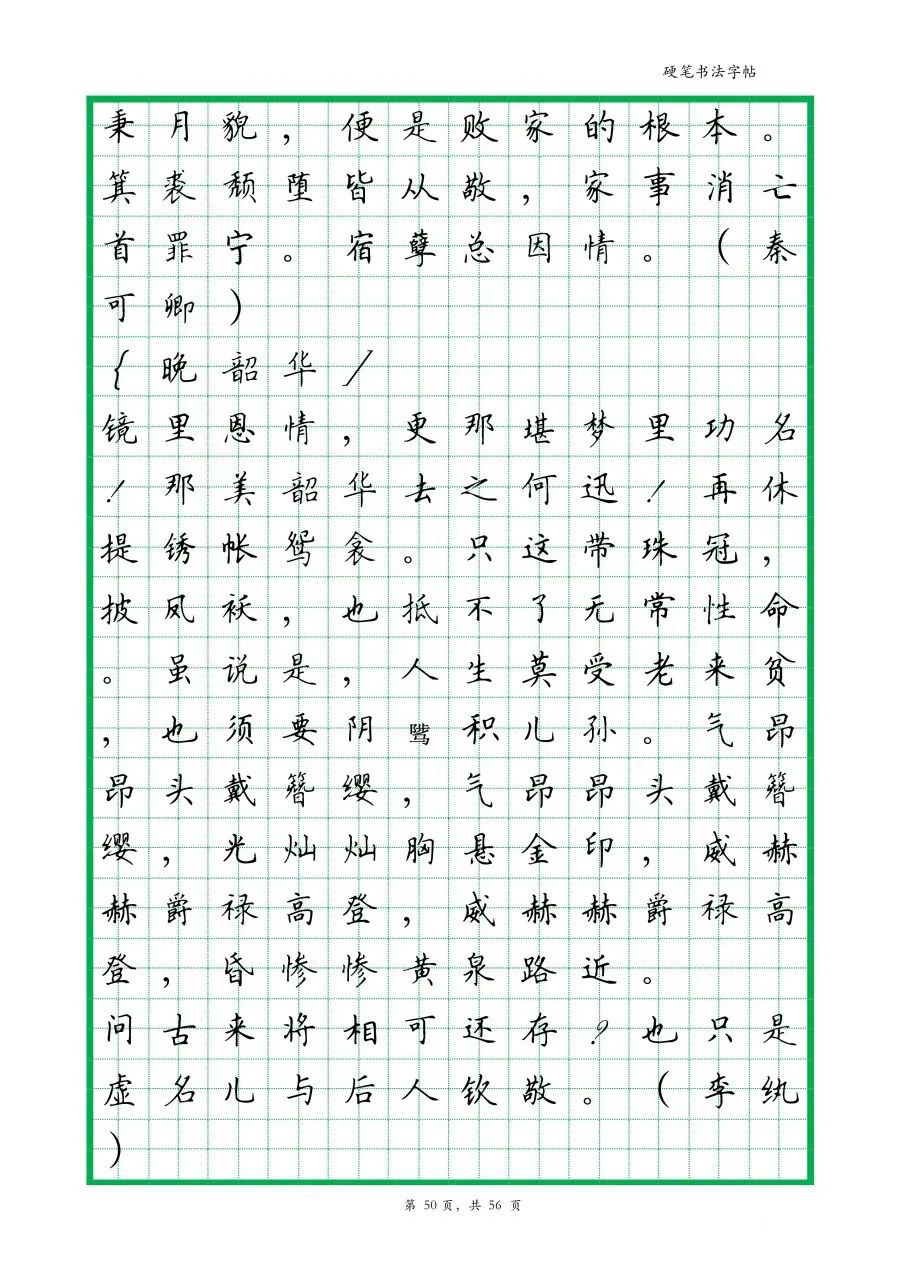 硬笔书法字帖
秉月貌，便是败家的根本。
箕裘颓堕皆从敬，家事消亡
首罪宁。宿孽总因情。（秦
可卿）
{晚韶华/
镜里恩情，更那堪梦里功名
！那美韶华去之何迅！再休
提锈帐鸳衾。只这带珠冠，
披凤袄，也抵不了无常性命
。虽说是，人生莫受老来贫
，也须要阴骘积儿孙。气昂
昂头戴簪缨，气昂昂头戴簪
缨，光灿灿胸悬金印，威赫
赫爵禄高登，威赫赫爵禄高
登，昏惨惨黄泉路近。
问古来将相可还存？也只是
虚名儿与后人钦敬。（李纨
）
第 50 页，共 56 页